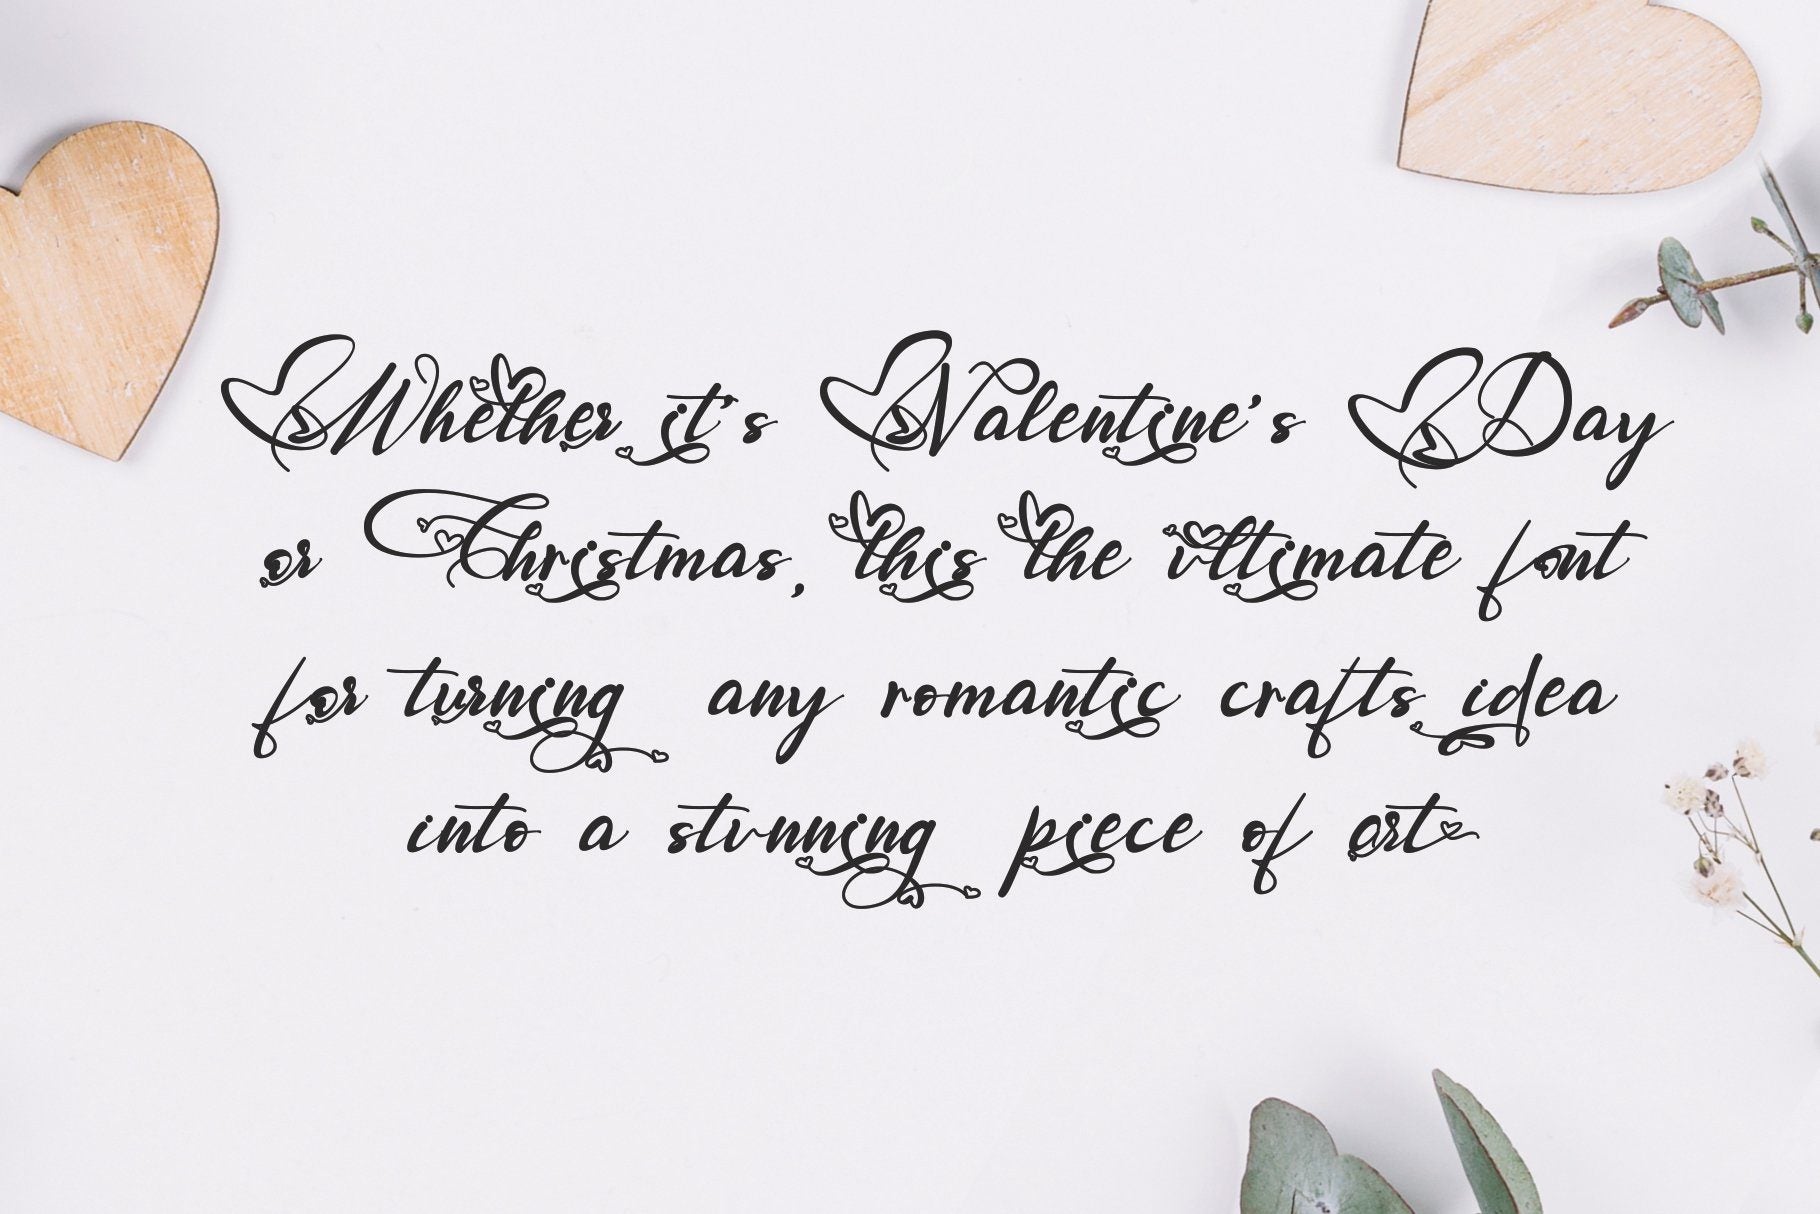 Whether it's Valentine's Day
or Christmas, this the ultimate font
for turning any romantic crafts idea
into a stunning piece of art